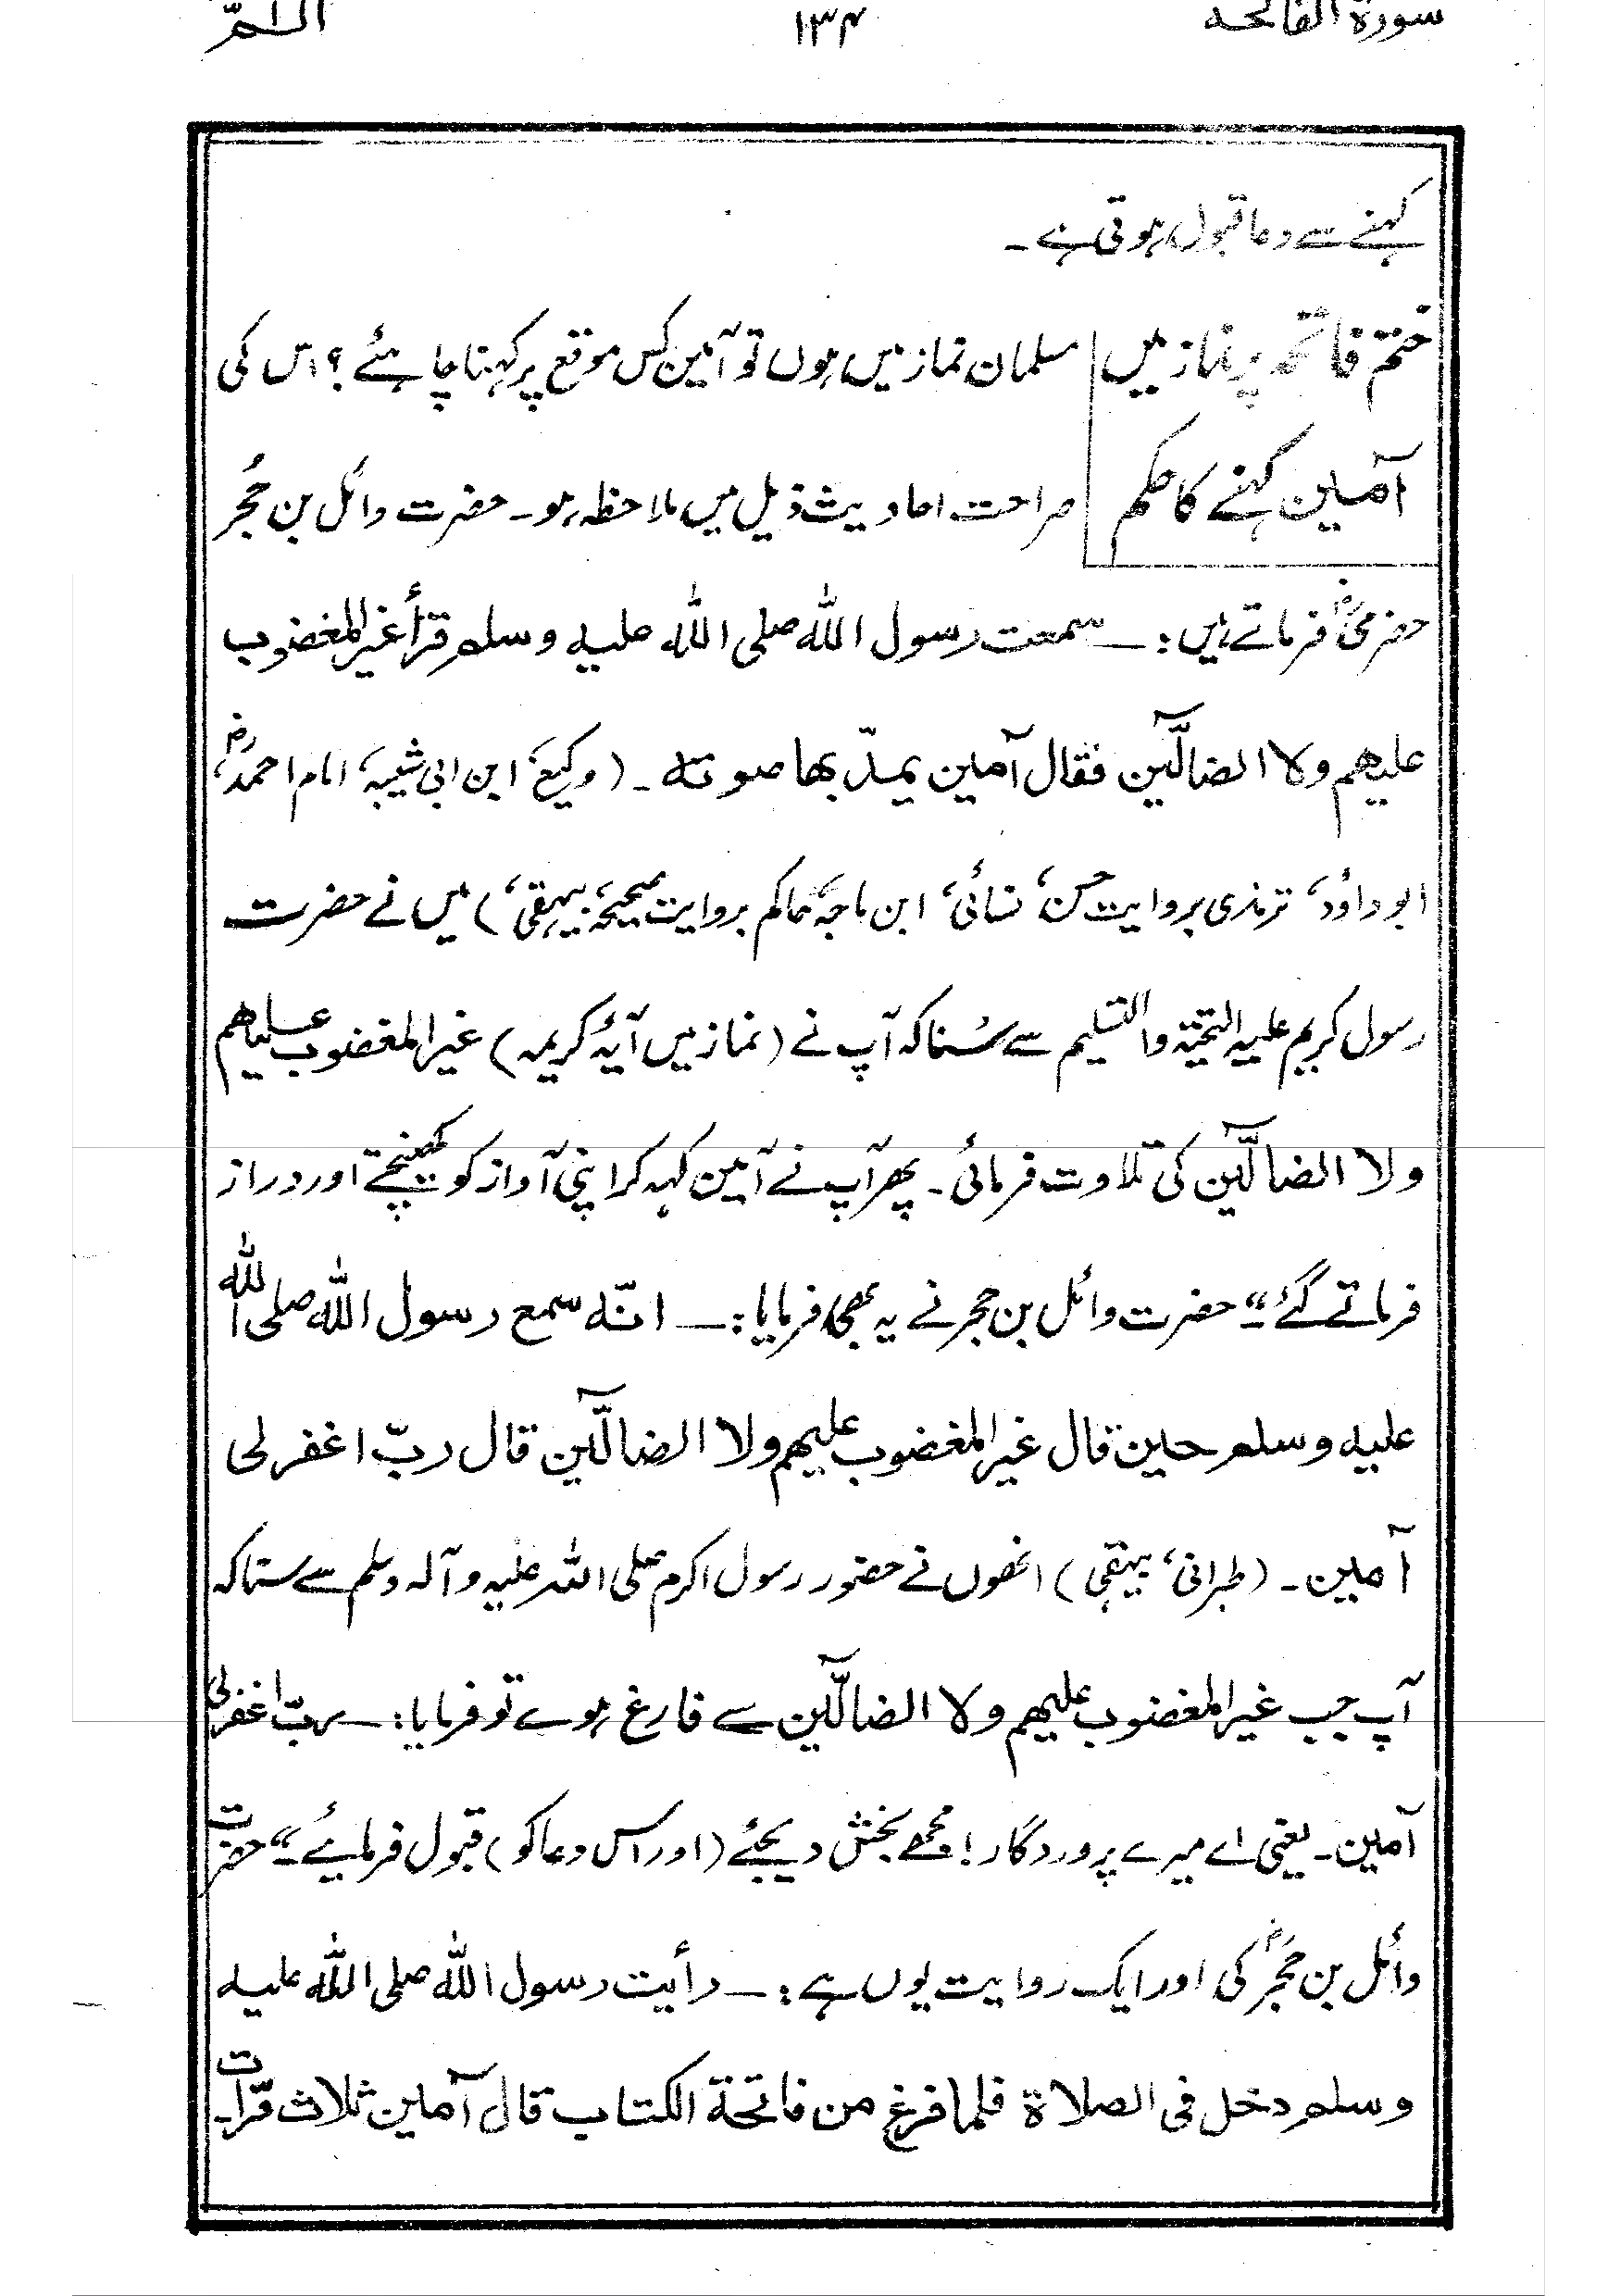 سورۃ الفاتحہ ۱۳۴ الٓـمّٓ
کہنے سے دعا قبول ہوتی ہے۔
ختم فاتحہ پر نماز میں مسلمان نماز میں ہوں تو آمین کس موقع پر کہنا چاہئے؟ اس کی
آمین کہنے کا حکم صراحت احادیث ذیل میں ملاحظہ ہو۔ حضرت وائل بن حُجر
حضرمیؓ فرماتے ہیں:۔ سمعت رسول اللّٰه صلی اللّٰه علیه وسلم قرأ غیر المغضوب
علیھم ولا الضالّٓین فقال آمین یمدّ بھا صوته۔ (وکیع، ابن ابی شیبہ، امام احمدؓ،
ابو داؤد، ترمذی بروایت حسن، نسائی، ابن ماجہ، حاکم بروایت صحیحہ، بیہقی،) میں نے حضرت
رسول کریم علیہ التحیۃ والتسلیم سے سُنا کہ آپ نے (نماز میں آیۂ کریمہ) غیر المغضوب علیھم
ولا الضالّٓین کی تلاوت فرمائی۔ پھر آپ نے آمین کہہ کر اپنی آواز کو کھینچتے اور دراز
فرماتے گئے۔" حضرت وائل بن حجر نے یہ بھی فرمایا:۔ انّه سمع رسول اللّٰه صلی اللّٰه
علیه وسلم حین قال غیر المغضوب علیھم ولا الضالّٓین قال ربّ اغفر لی
آمین۔ (طبرانی، بیہقی) انھوں نے حضور رسول اکرم صلی اللہ علیہ وآلہ وسلم سے سنا کہ
آپ جب غیر المغضوب علیھم ولا الضالّٓین سے فارغ ہوے تو فرمایا:۔ ربّ اغفر لی
آمین۔ یعنی اے میرے پروردگار! مجھے بخش دیجئے (اور اس دعا کو) قبول فرمائیے۔" حضرت
وائل بن حُجرؓ کی اور ایک روایت یوں ہے:۔ رأیت رسول اللّٰه صلی اللّٰه علیه
وسلم دخل فی الصلاۃ فلما فرغ من فاتحة الکتاب قال آمین ثلاث مّرات۔